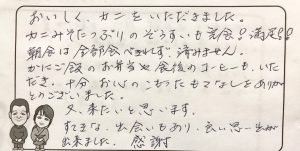 おいしく、カニをいただきました。
カニみそたっぷりのぞうすいも完食!満足!!
朝食は全部食べきれず、済みません。
かにご飯のお弁当や食後のコーヒーも、いただ
き、十分お心のこもったおもてなしをありが
とうございました。
又、来たいと思います。
すてきな、出会いもあり、良い思い出が
出来ました。 感謝